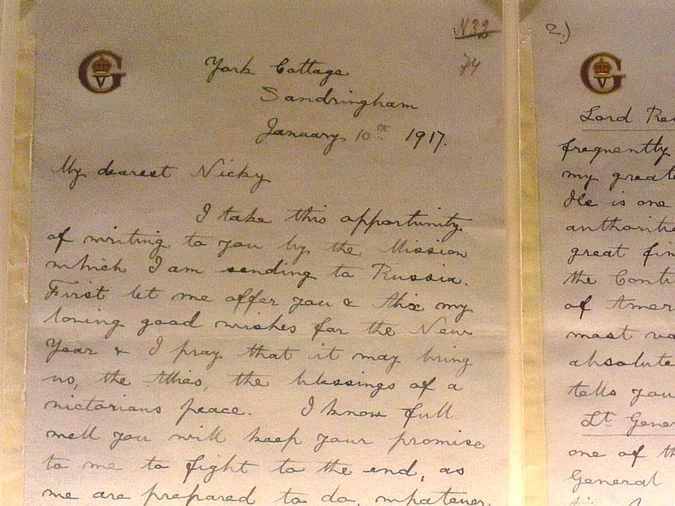 N32
74
York Cottage
Sandringham
January 10th 1917.
My dearest Nicky
I take this opportunity
of writing to you by the Mission
which I am sending to Russia.
First let me offer you & Alix my
loving good wishes for the New
Year & I pray that it may bring
us, the Allies, the blessings of a
victorious peace. I know full
well you will keep your promise
to me to fight to the end, as
we are prepared to do, whatever
2.)
Lord
frequently
my
He is one
great
the
of
most
absolute
tells you
Lt
one of
General